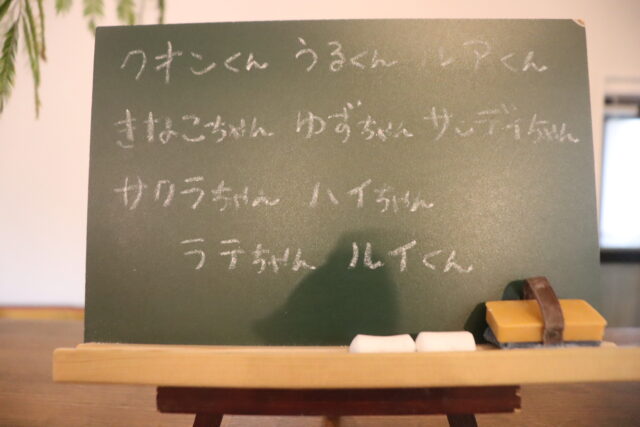 クオンくん うるくん ルアくん
きなこちゃん ゆずちゃん サンディちゃん
サクラちゃん ハイちゃん
ラテちゃん ルイくん